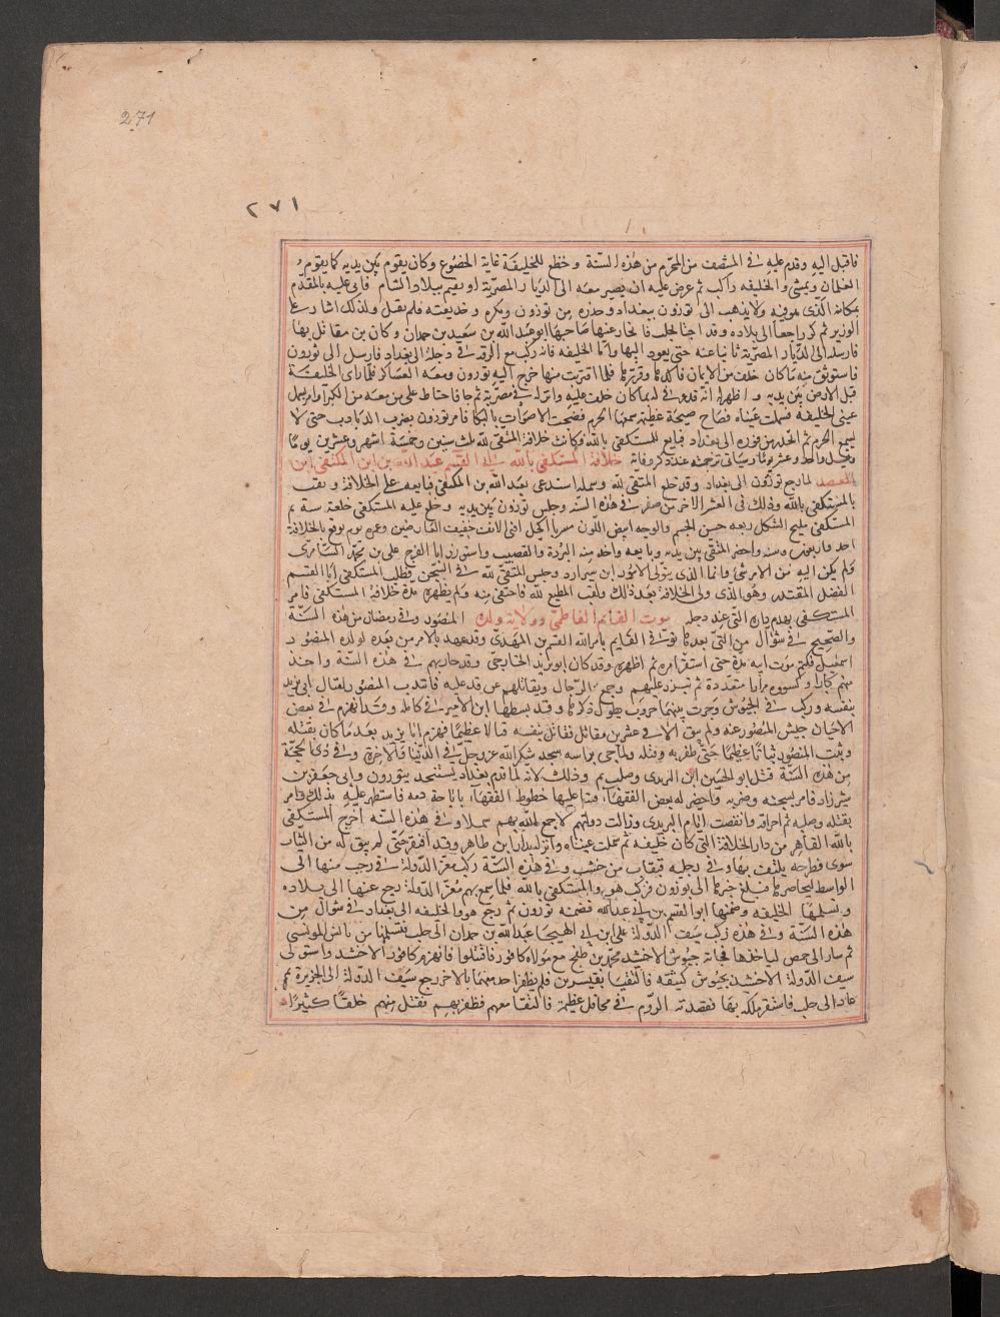 271
٢٧١
فاقبل اليه وقدم عليه في المنتصف من المحرم من هذه السنة وخضع للخليفة غاية الخضوع وكان يقوم بين يديه كما يقوم
الغلمان ويمشي والخليفه راكب ثم عرض عليه ان يصير معه الى الديار المصرية او يقيم ببلاد الشام فابى عليه بالمقام
مكانه الذي هو فيه ولا يذهب الى توزون ببغداد وحذره من توزون ومكره وخديعته فلم يقبل وكذلك اشار على
الوزير ثم كر راجعا الى بلاده وقد اجتاز بحلب فانحاز عنها صاحبها ابو عبد الله بن سعيد بن حمدان وكان بن مقاتل بها
فارسله الى الديار المصرية نائبا عنه حتى يعود اليها واما الخليفه فانه ركب مع الرقه في دجله الى بغداد فارسل الى توزون
فاستوثق منه ما كان حلف من الايمان فاكدها وقررها فلما اقتربت منها خرج اليه توزون ومعه العساكر فلما راى الخليفة
قبل الارض بين يديه واظهر له انه قد وفى له بما كان حلف عليه وانزله في مضربه ثم جا فاحتاط على من معه من الكبرا وامر بسمل
عيني الخليفه فسملت عيناه فصاح صيحة عظيمه سمعها الحرم فضجت الاصوات بالبكا فامر توزون بضرب الدبادب حتى لا
يسمع الحرم ثم انحدر من فوره الى بغداد فبايع للمستكفي بالله فكانت خلافة المتقي لله ثلث سنين وخمسة اشهر وعشرين يوما
وقيل واحد وعشر يوما وسياتي ترجمته عند ذكر وفاته خلافة المستكفي بالله ابي القسم عبد الله بن ابن المكتفي ابن
المعتضد لما رجع توزون الى بغداد وقد خلع المتقي لله وسمله استدعى بعبد الله بن المكتفي فبايعه على الخلافة ولقب
بالمستكفي بالله وذلك في العشر الاخر من صفر في هذه السنه وجلس توزون بين يديه وخلع عليه المستكفي خلعة سنة ثم
المستكفي مليح الشكل ربعه حسن الجسم والوجه ابيض اللون مشربا اكحل اقنى الانف خفيف العارضين وعمره يوم بويع بالخلافة
احد واربعون سنه واحضر المتقي بين يديه وبايعه واخذ منه البردة والقضيب واستوزر ابا الفرج علي بن محمد السامري
ولم يكن اليه من الامر شئ وانما الذي يتولى الامور ابن شيرزاد وحبس المتقي لله في السجن وطلب المستكفي ابا القسم
الفضل بن المقتدر وهو الذي ولي الخلافة بعد ذلك ولقب المطيع لله فاختفى منه ولم يظهر مدة خلافة المستكفي فامر
المستكفي بهدم داره التي عند دجله موت القائم الفاطمي وولاية ولده المنصور وفي رمضان من هذه السنة
والصحيح في شوال من التي بعدها توفي القايم بامر الله القسم بن المهدي وقد عهد بالامر من بعده لولده المنصور
اسمعيل فكتم موت ابيه مدة حتى استقر امره ثم اظهره وقد كان ابو يزيد الخارجي وقد حاربهم في هذه السنة واخذ
منهم كبارا وكسروه مرارا متعددة ثم يبرز عليهم وجمع الرجال ويقاتلهم عن قدم عليه فانتدب المنصور لقتال ابي يزيد
بنفسه وركب في الجيوش وجرت بينهما حروب يطول ذكرها وقد بسطها ابن الاثير في كامله وقد انهزم في بعض
الاحيان جيش المنصور عنه ولم يبق الا في عشرين مقاتل فقاتل بنفسه قتالا عظيما فهزم ابا يزيد بعد ما كان يقتله
وثبت المنصور ثباتا عظيما حتى ظفر به وقتله ولما جي براسه سجد شكرا لله عز وجل في الدنيا والاخرة وفي ذي الحجة
من هذه السنة قتل ابو الحسين ابن البريدي وصلب ثم وذلك لانه لما قدم بغداد يستنجد بتوزون وابى جعفر بن
شيرزاد فامر بسجنه وضربه واحضر له بعض الفقهاء فتيا عليها خطوط الفقهاء باباحة دمه فاستظهر عليه بذلك وامر
بقتله وصلبه ثم احراقه وانقضت ايام البريدي وزالت دولتهم وفي هذه السنه اخرج المستكفي
بالله القاهر من دار الخلافة التي كان خليفه ثم سملت عيناه وانزله بدار ابن طاهر وقد افتقر حتى لم يبق له من الثياب
سوى قطن جبه يلتف بها وفي رجليه قبقاب من خشب وفي هذه السنة ركب معز الدولة في رجب منها الى
الواسط ليحاصرها فبلغ خبرها الى توزون فركب هو والمستكفي بالله فلما سمع بهم معز الدولة رجع عنها الى بلاده
وتسلمها الخليفه وضمنها ابو القسم بن ابي عبد الله فضمنه توزون ثم رجع هو والخليفه الى بغداد في شوال من
هذه السنة وفي هذه ركب سيف الدولة علي ابن ابي الهيجا عبد الله بن حمدان الى حلب فتسلمها من يانس المونسي
ثم سار الى حمص لياخذها فجاته جيوش الاخشيد محمد بن طغج مع مولاه كافور فاقتتلوا فانهزم كافور الاخشيد واستولى
سيف الدولة الاخشيد بجيوش كثيفه فالتقيا بقنسرين فلم يظفر احد منهما بالاخر رجع سيف الدولة الى الجزيرة ثم
عاد الى حلب فاستقر ملكه بها فقصدته الروم في محافل عظيمة فالتقا معهم فظفر بهم فقتل منهم خلقا كثيرا